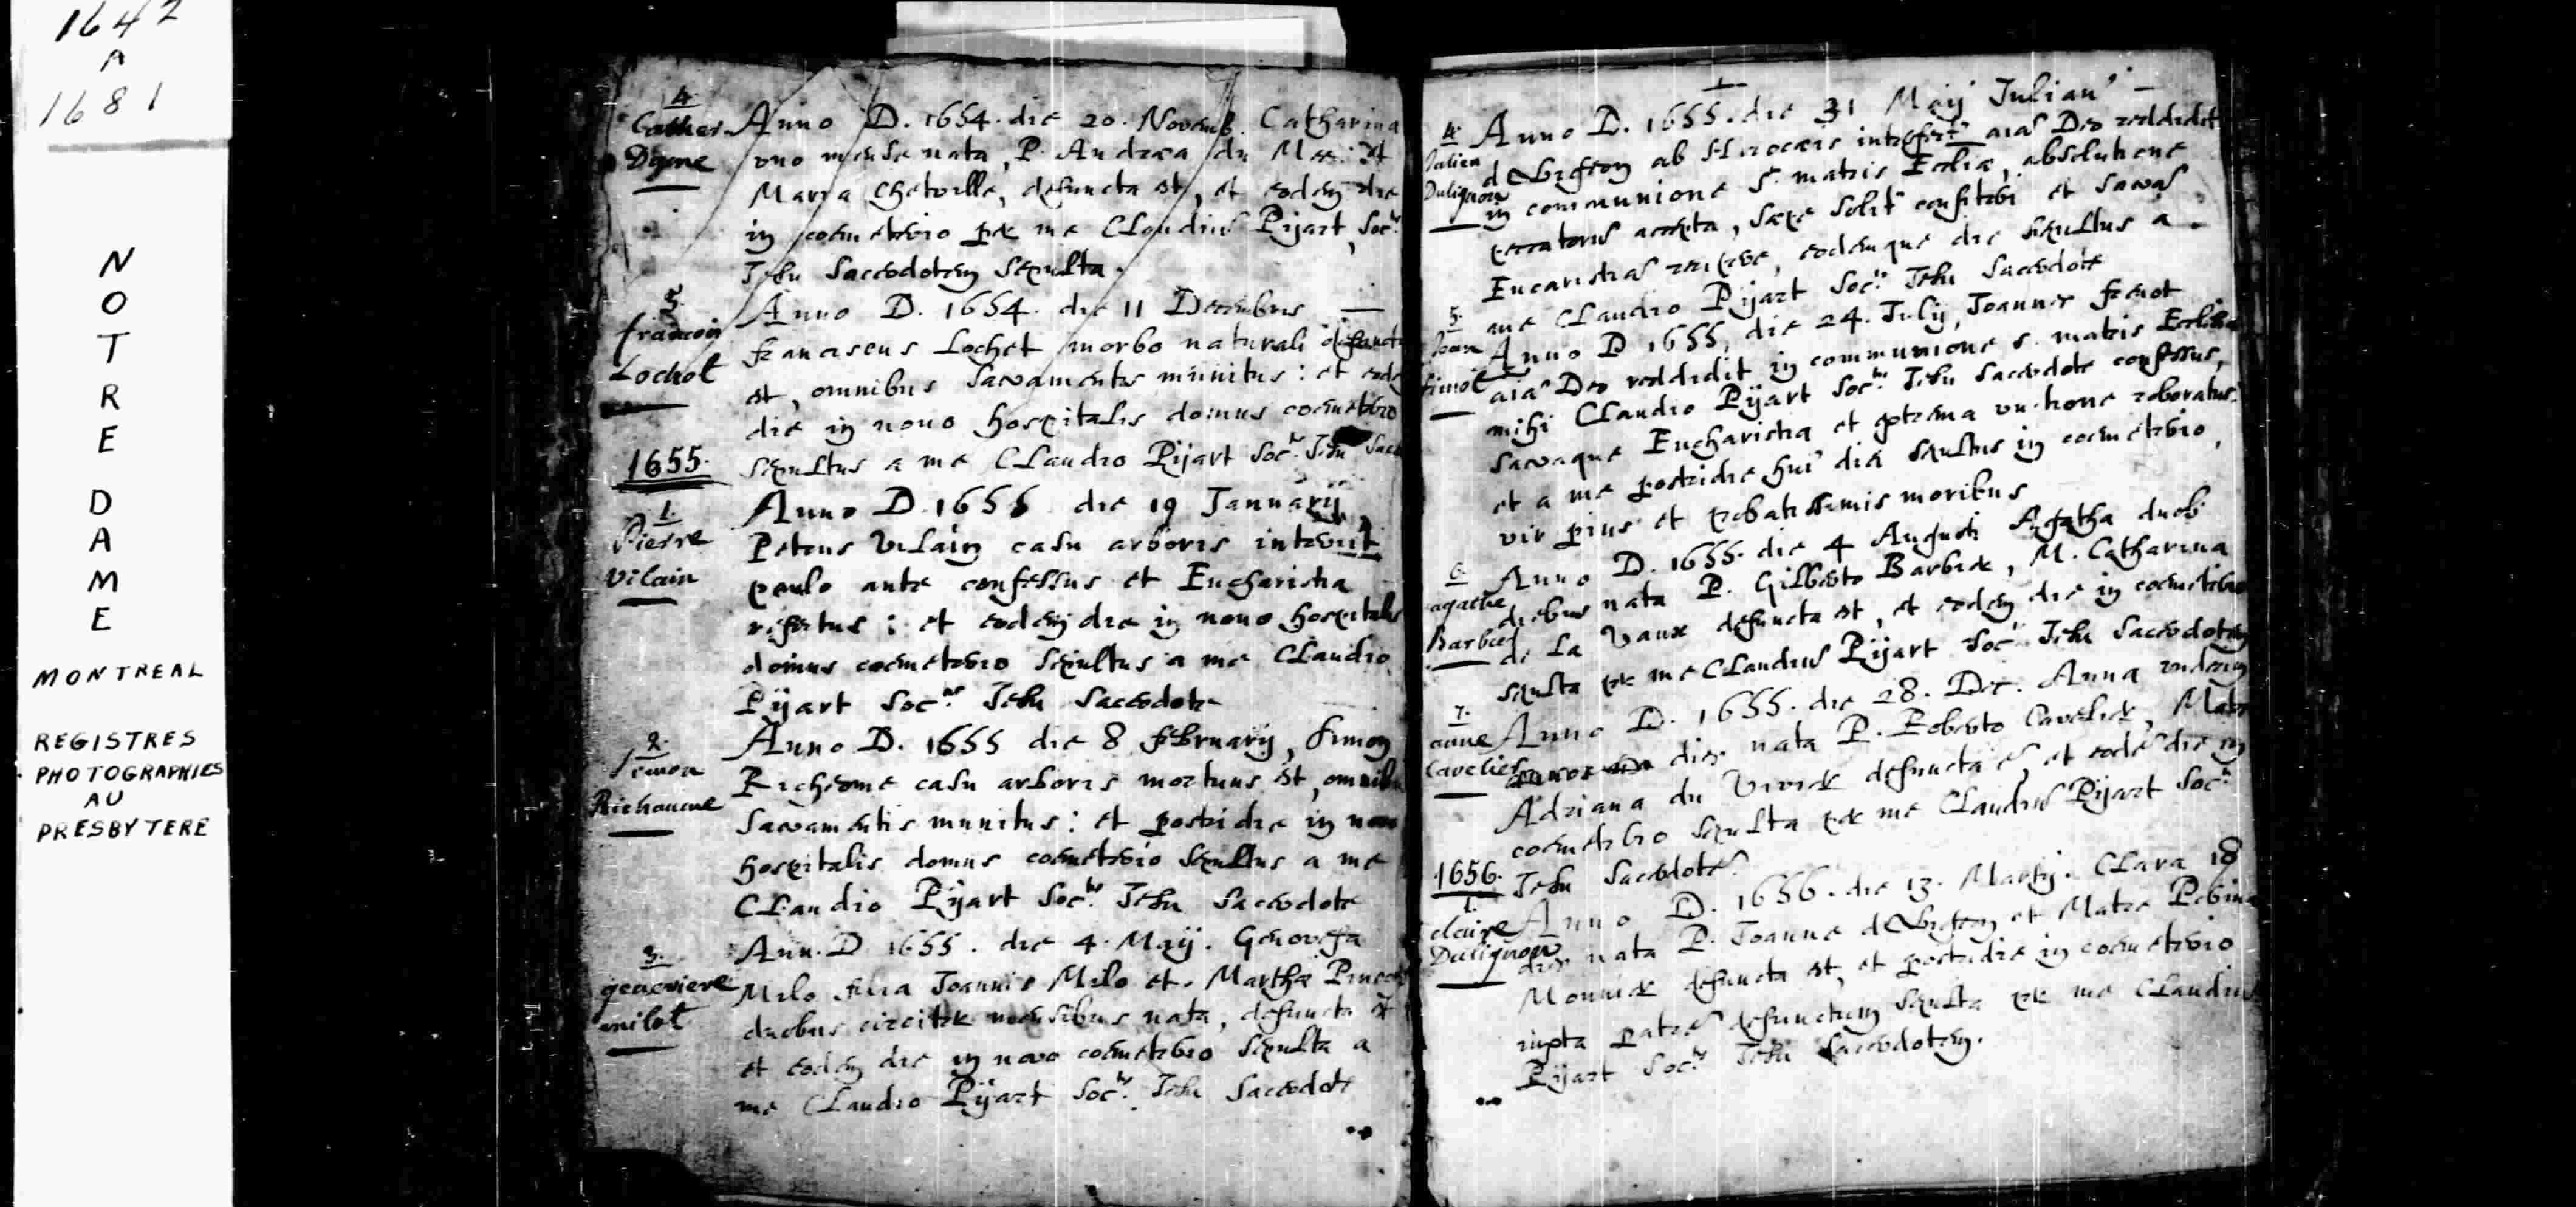 1642
A
1681
NOTRE DAME
MONTREAL
REGISTRES
PHOTOGRAPHIES
AU
PRESBYTERE
4.
Anno D. 1654. die 20. Novemb. Catharina
uno mense nata, P. Andrea du M
Maria Chetville, defuncta est, et eodem die
in coemeterio per me Claudiũ Pijart, Soc.tis
Jesu Sacerdotem Sepulta.
5.
francois
Lochet
Anno D. 1654. die 11 Decembris
franciscus Lochet morbo naturali defunct
est, omnibus Sacramentis munitus: et eode
die in novo hospitalis domus coemeterio
sepultus a me Claudio Pijart Soc.tis Jesu Sace
1655.
1.
Pierre
Vilain
Anno D. 1655 die 19 Januarij,
Petrus Vilain casu arboris interiit
paulo ante confessus et Eucharistia
refectus: et eodem die in novo hospitalis
domus coemeterio Sepultus a me Claudio
Pijart Soc.tis Jesu Sacerdote
2.
Simon
Richaume
Anno D. 1655 die 8 februarij, Simon
Richeome casu arboris mortuus est, omnibu
Sacramentis munitus: et postridie in novo
hospitalis domus coemeterio Sepultus a me
Claudio Pijart Soc.tis Jesu Sacerdote
3.
genevieve
milot
Ann. D 1655. die 4. Maij. Genovefa
Milo filia Joannis Milo et Marthæ Pinson
duobus circiter mensibus nata, defuncta est
et eodem die in novo coemeterio Sepulta a
me Claudio Pijart Soc.tis Jesu Sacerdote
4.
Julien
Daubigeon
Anno D. 1655. die 31 Maij Julian9
d'Aubigeon ab Hirocæis interfect9 aiãm Deo reddidit
in communione S. matris Ecliæ, absolutione
peccatorum accepta, sæpe solit9 confiteri et Sacrã
Eucaristiã recipere, eodemque die sepultus a
me Claudio Pijart Soc.tis Jesu Sacerdote
5.
Jean
Anno D 1655, die 24. Julij, Joannes
aiã Deo reddidit in communione S. matris Ecclesiæ
mihi Claudio Pijart Soc.tis Jesu Sacerdote confessus,
Sacraque Eucharistia et extrema unctione roboratus.
et a me postridie hui9 diei Sepultus in coemeterio,
vir pius et probatissimis moribus
6.
agathe
Barbier
Anno D. 1655. die 4 Augusti Agatha duob9
diebus nata P. Gilberto Barbier, M. Catharina
de La Vaux defuncta est, et eodem die in coemeterio
Sepulta per me Claudiũ Pijart Soc.tis Jesu Sacerdotem
7.
anne
Cavelier
Anno D. 1655. die 28. Dec. Anna undecim
dies nata P. Roberto Cavelier, Matre
Adriana du Vivier defuncta ẽ, et eodẽ die in
coemeterio Sepulta per me Claudiũ Pijart Soc.tis
Jesu Sacerdotẽ.
1656.
1.
claire
Anno D. 1656. die 13. Martij. Clara 18
dies nata P. Joanne d'Aubigeon et Matre Perina
Mounier defuncta est, et postridie in coemeterio
iuxta patrẽ defunctum Sepulta per me Claudiũ
Pijart Soc.tis Jesu Sacerdotem.